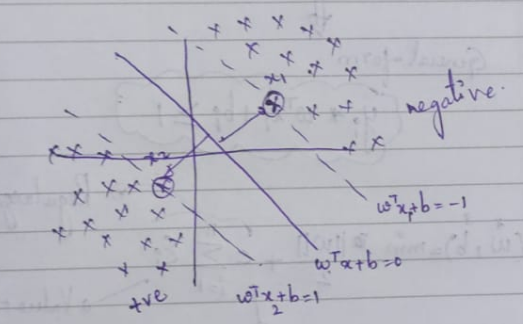 x1
negative.
x2
wᵀx₁+b=-1
wᵀx+b=0
+ve
wᵀx₂+b=1